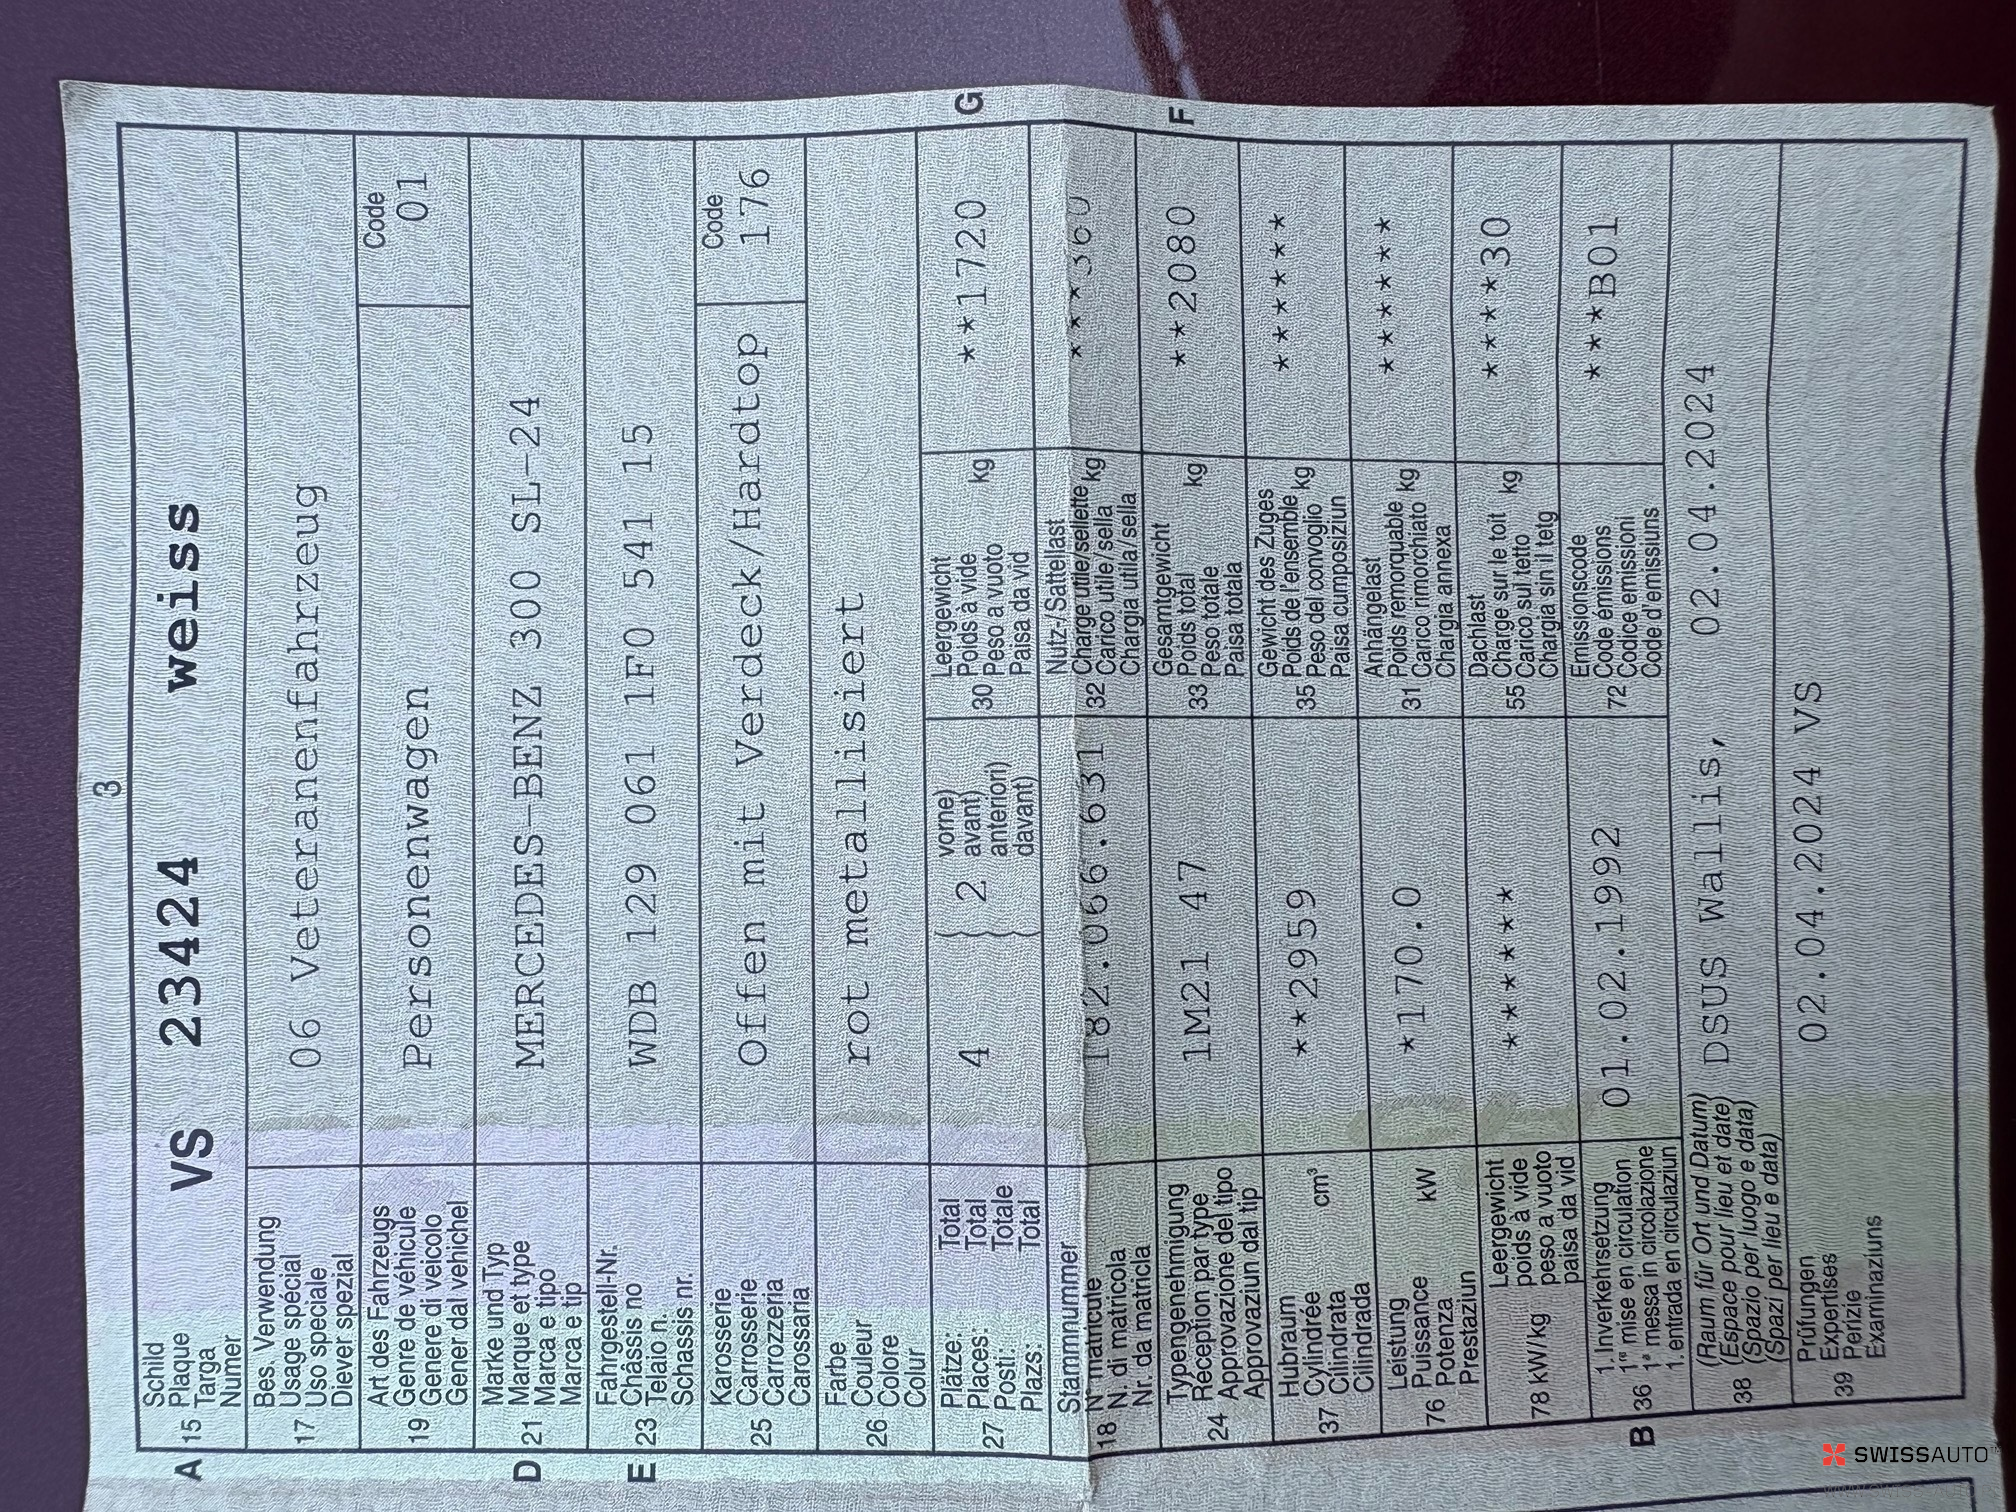 3
A 15 Schild
Plaque
Targa
Numer
VS 23424 weiss
17 Bes. Verwendung
Usage spécial
Uso speciale
Diever spezial
06 Veteranenfahrzeug
19 Art des Fahrzeugs
Genre de véhicule
Genere di veicolo
Gener dal vehichel
Personenwagen
Code
01
D 21 Marke und Typ
Marque et type
Marca e tipo
Marca e tip
MERCEDES-BENZ 300 SL-24
E 23 Fahrgestell-Nr.
Châssis no
Telaio n.
Schassis nr.
WDB 129 061 1F0 541 15
25 Karosserie
Carrosserie
Carrozzeria
Carossaria
Offen mit Verdeck/Hardtop
Code
176
26 Farbe
Couleur
Colore
Colur
rot metallisiert
27 Plätze: Total
Places: Total
Posti: Totale
Plazs: Total
4 { 2 vorne)
avant)
anteriori)
davant)
G
30 Leergewicht
Poids à vide kg
Peso a vuoto
Paisa da vid
**1720
18 Stammnummer
N° matricule
N. di matricola
Nr. da matricla
182.066.631
32 Nutz-/Sattellast
Charge utile/sellette kg
Carico utile/sella
Chargia utila/sella
***360
24 Typengenehmigung
Réception par type
Approvazione del tipo
Approvaziun dal tip
1M21 47
F
33 Gesamtgewicht
Poids total kg
Peso totale
Paisa totala
**2080
37 Hubraum
Cylindrée cm³
Cilindrata
Cilindrada
**2959
35 Gewicht des Zuges
Poids de l'ensemble kg
Peso del convoglio
Paisa cumposiziun
******
76 Leistung
Puissance kW
Potenza
Prestaziun
*170.0
31 Anhängelast
Poids remorquable kg
Carico rimorchiato
Chargia annexa
******
78 kW/kg Leergewicht
poids à vide
peso a vuoto
paisa da vid
******
55 Dachlast
Charge sur le toit kg
Carico sul tetto
Chargia sin il tetg
****30
B 36 1. Inverkehrsetzung
1re mise en circulation
1a messa in circolazione
1. entrada en circulaziun
01.02.1992
72 Emissionscode
Code émissions
Codice emissioni
Code d'emissiuns
***B01
38 (Raum für Ort und Datum)
(Espace pour lieu et date)
(Spazio per luogo e data)
(Spazi per lieu e data)
DSUS Wallis, 02.04.2024
39 Prüfungen
Expertises
Perizie
Examinaziuns
02.04.2024 VS
SWISSAUTO